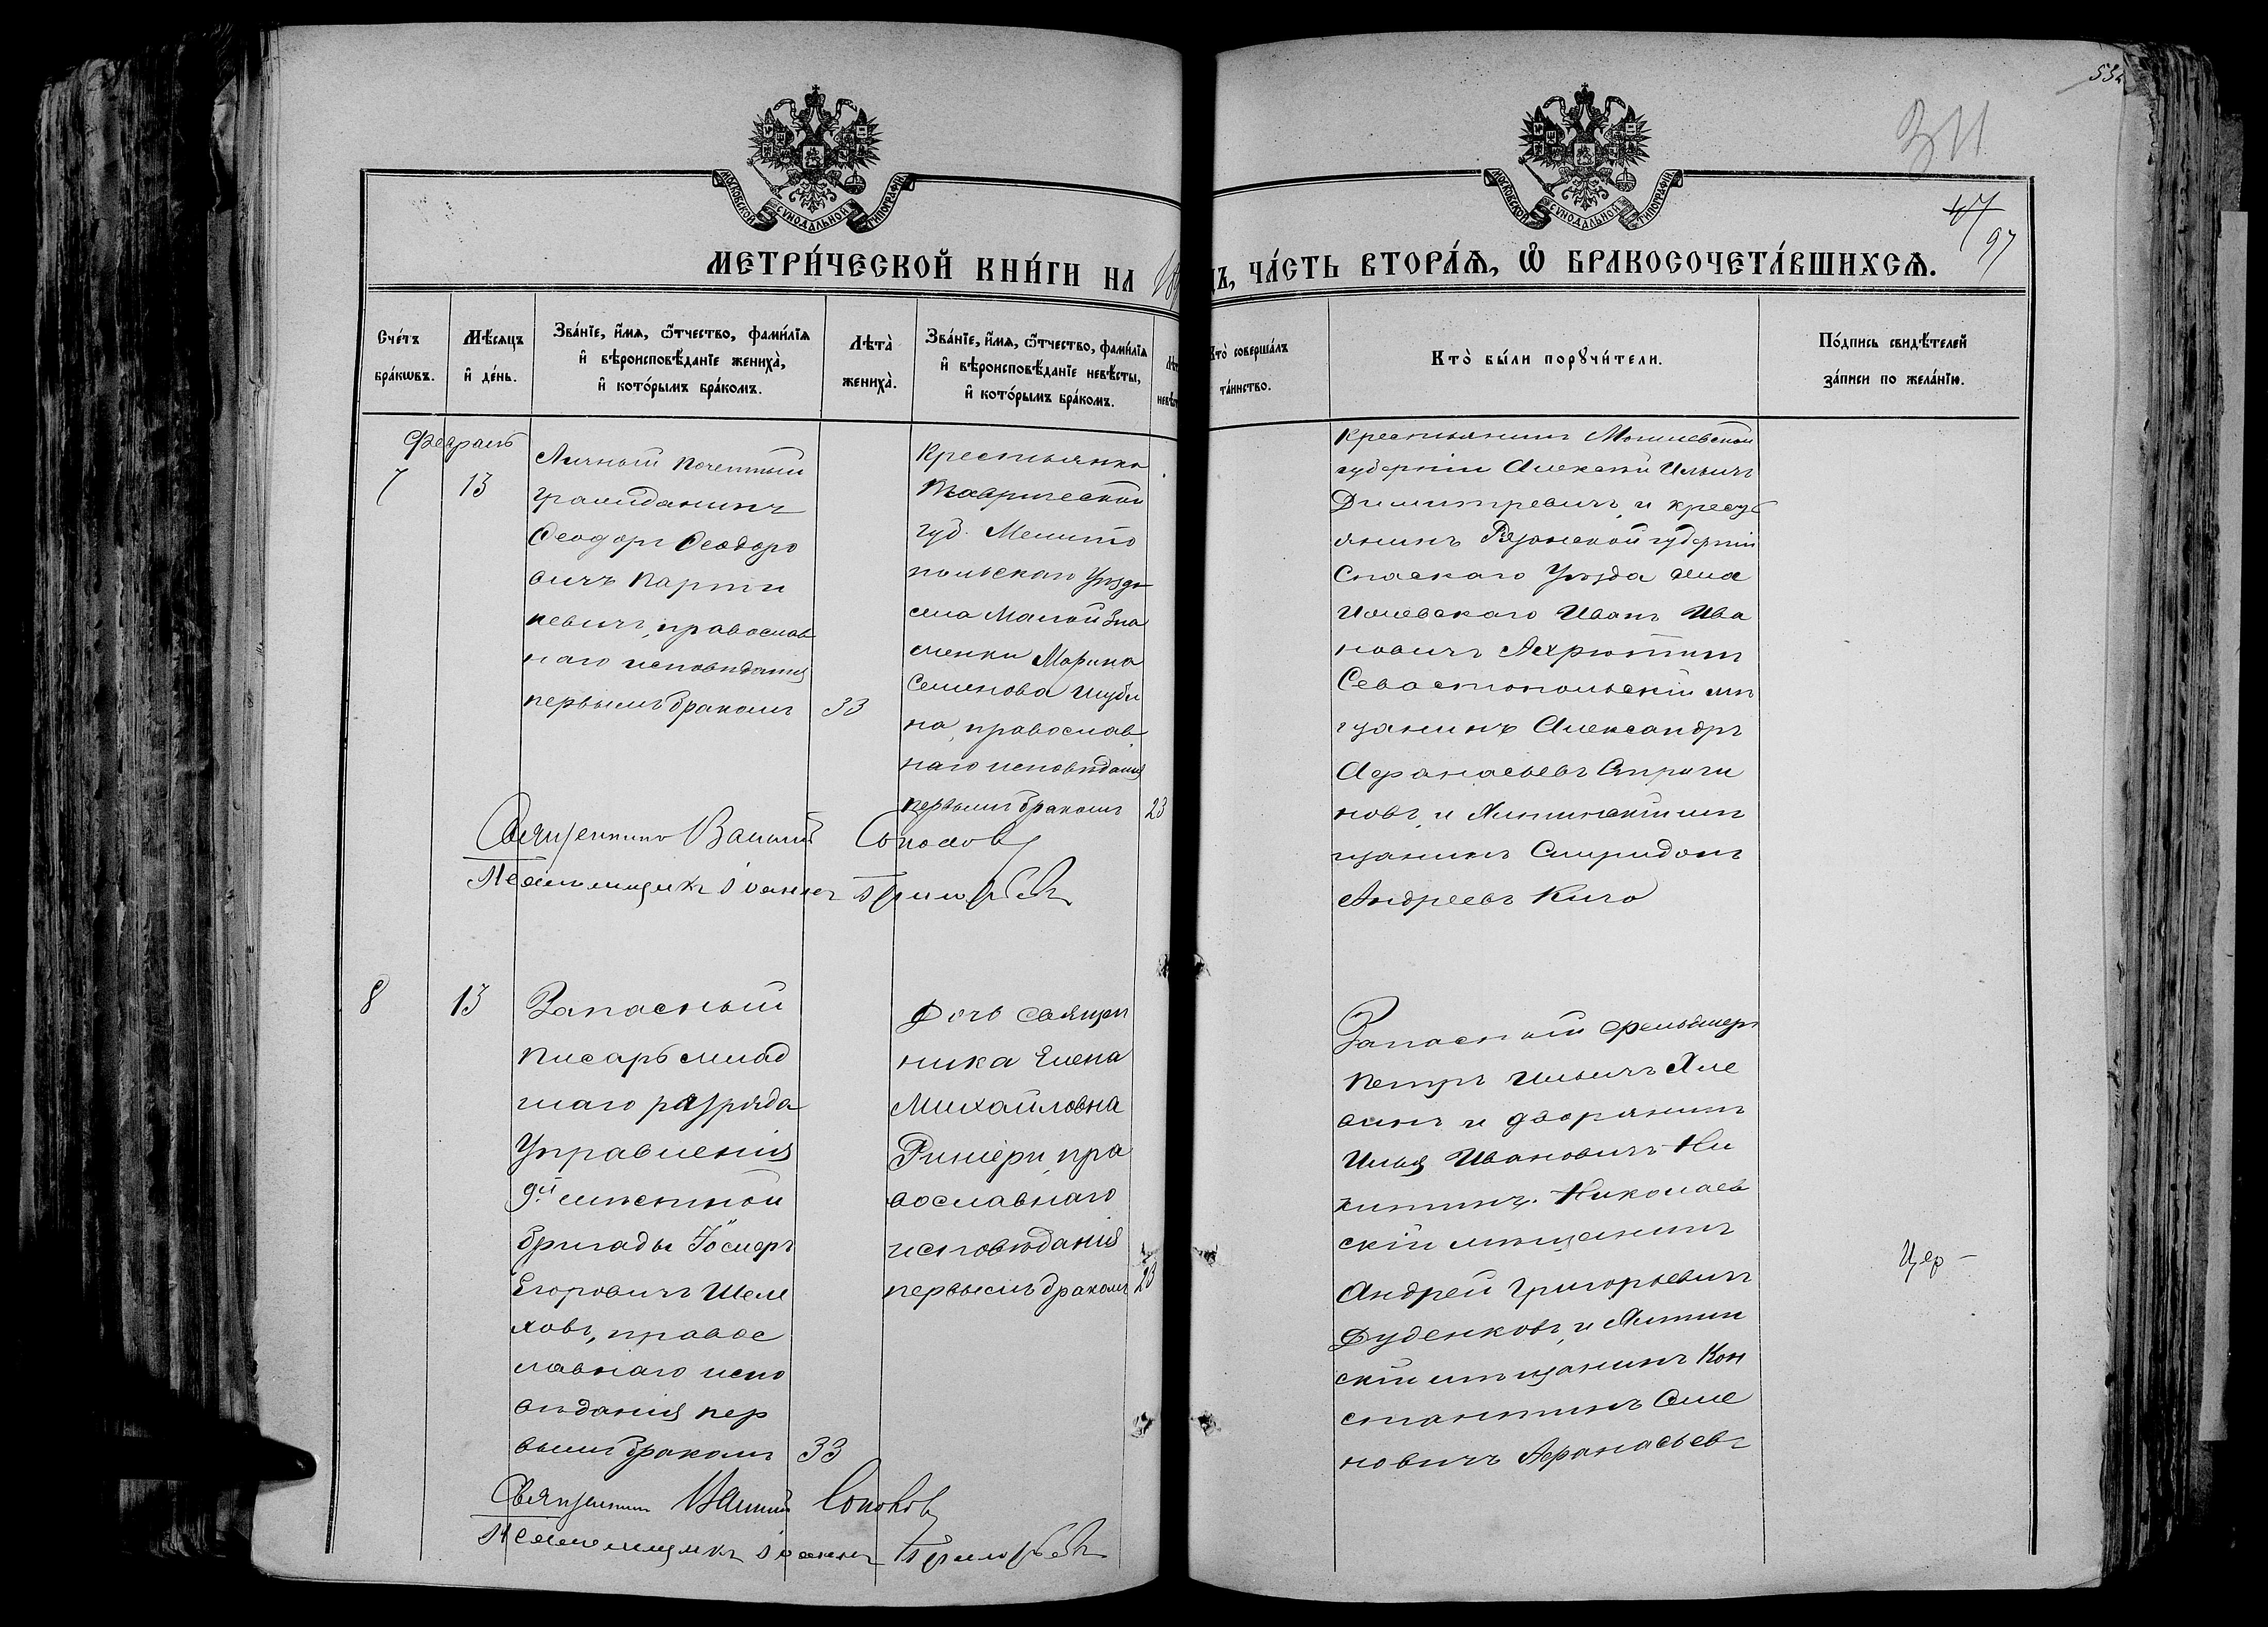 534
311
47
97
МОСКОВСКОЙ СѴНОДАЛЬНОЙ ТИПОГРАФІИ
МОСКОВСКОЙ СѴНОДАЛЬНОЙ ТИПОГРАФІИ
МЕТРИ́ЧЕСКОЙ КНИ́ГИ НА 18
ДЪ, ЧА́СТЬ ВТОРА́Ѧ, Ѽ БРАКОСОЧЕТА́ВШИХСѦ.
Сче́тъ
бра́кѡвъ.
Мѣ́сѧцъ
и҆ де́нь.
Зва́нїе, и҆́мѧ, ѻ҆́тчество, фами́лїѧ
и҆ вѣроисповѣ́данїе жениха̀,
и҆ кото́рымъ бра́комъ.
Лѣта̀
жениха̀.
Зва́нїе, и҆́мѧ, ѻ҆́тчество, фами́лїѧ
и҆ вѣроисповѣ́данїе невѣ́сты,
и҆ кото́рымъ бра́комъ.
Кто̀ соверша́лъ
та́инство.
Кто̀ бы́ли порꙋчи́тели.
По́дпись свидѣ́телей
за́писи по жела́нїю.
Февраль
7
13
Личный почетный
гражданинъ
Ѳеодоръ Ѳеодоро
вичъ Карпи
невичъ, православ
наго исповѣданія
первымъ бракомъ
33
Крестьянка
Таврической
губ. Мелито
польскаго Уѣзда
села Малой Зна
менки Марина
Семенова Шуби
на, православ
наго исповѣданія
первымъ бракомъ
23
Крестьянинъ Могилевской
губерніи Алексѣй Ильичъ
Димитревичъ, и кресть
янинъ Рязанской губерніи
Спаскаго Уѣзда села
Ижевскаго Иванъ Ива
новичъ
Севастопольскій мѣ
щанинъ Александръ
Аѳанасьевъ
новъ, и Ялтинскій мѣ
щанинъ Спиридонъ
Андреевъ Кичо
Священникъ Василій Соколовъ
Псаломщикъ Іоаннъ Григорьевъ
8
13
Запасный
писарь млад
шаго разряда
Управленія
9й мѣстной
бригады Іосифъ
Егоровичъ Шеле
ховъ, правос
лавнаго испо
вѣданія пер
вымъ бракомъ
33
Дочь священ
ника Елена
Михайловна
пра
вославнаго
исповѣданія
первымъ бракомъ
23
Запасный фельдшеръ
Петръ Ильичъ
и дворянинъ
Илья Ивановичъ Ни
китинъ. Николаев
скій мѣщанинъ
Андрей Григорьевичъ
Дуденковъ, и Ялтин
скій мѣщанинъ Кон
стантинъ Семе
новичъ Аѳанасьевъ
Священникъ Василій Соколовъ
Псаломщикъ Іоаннъ Григорьевъ